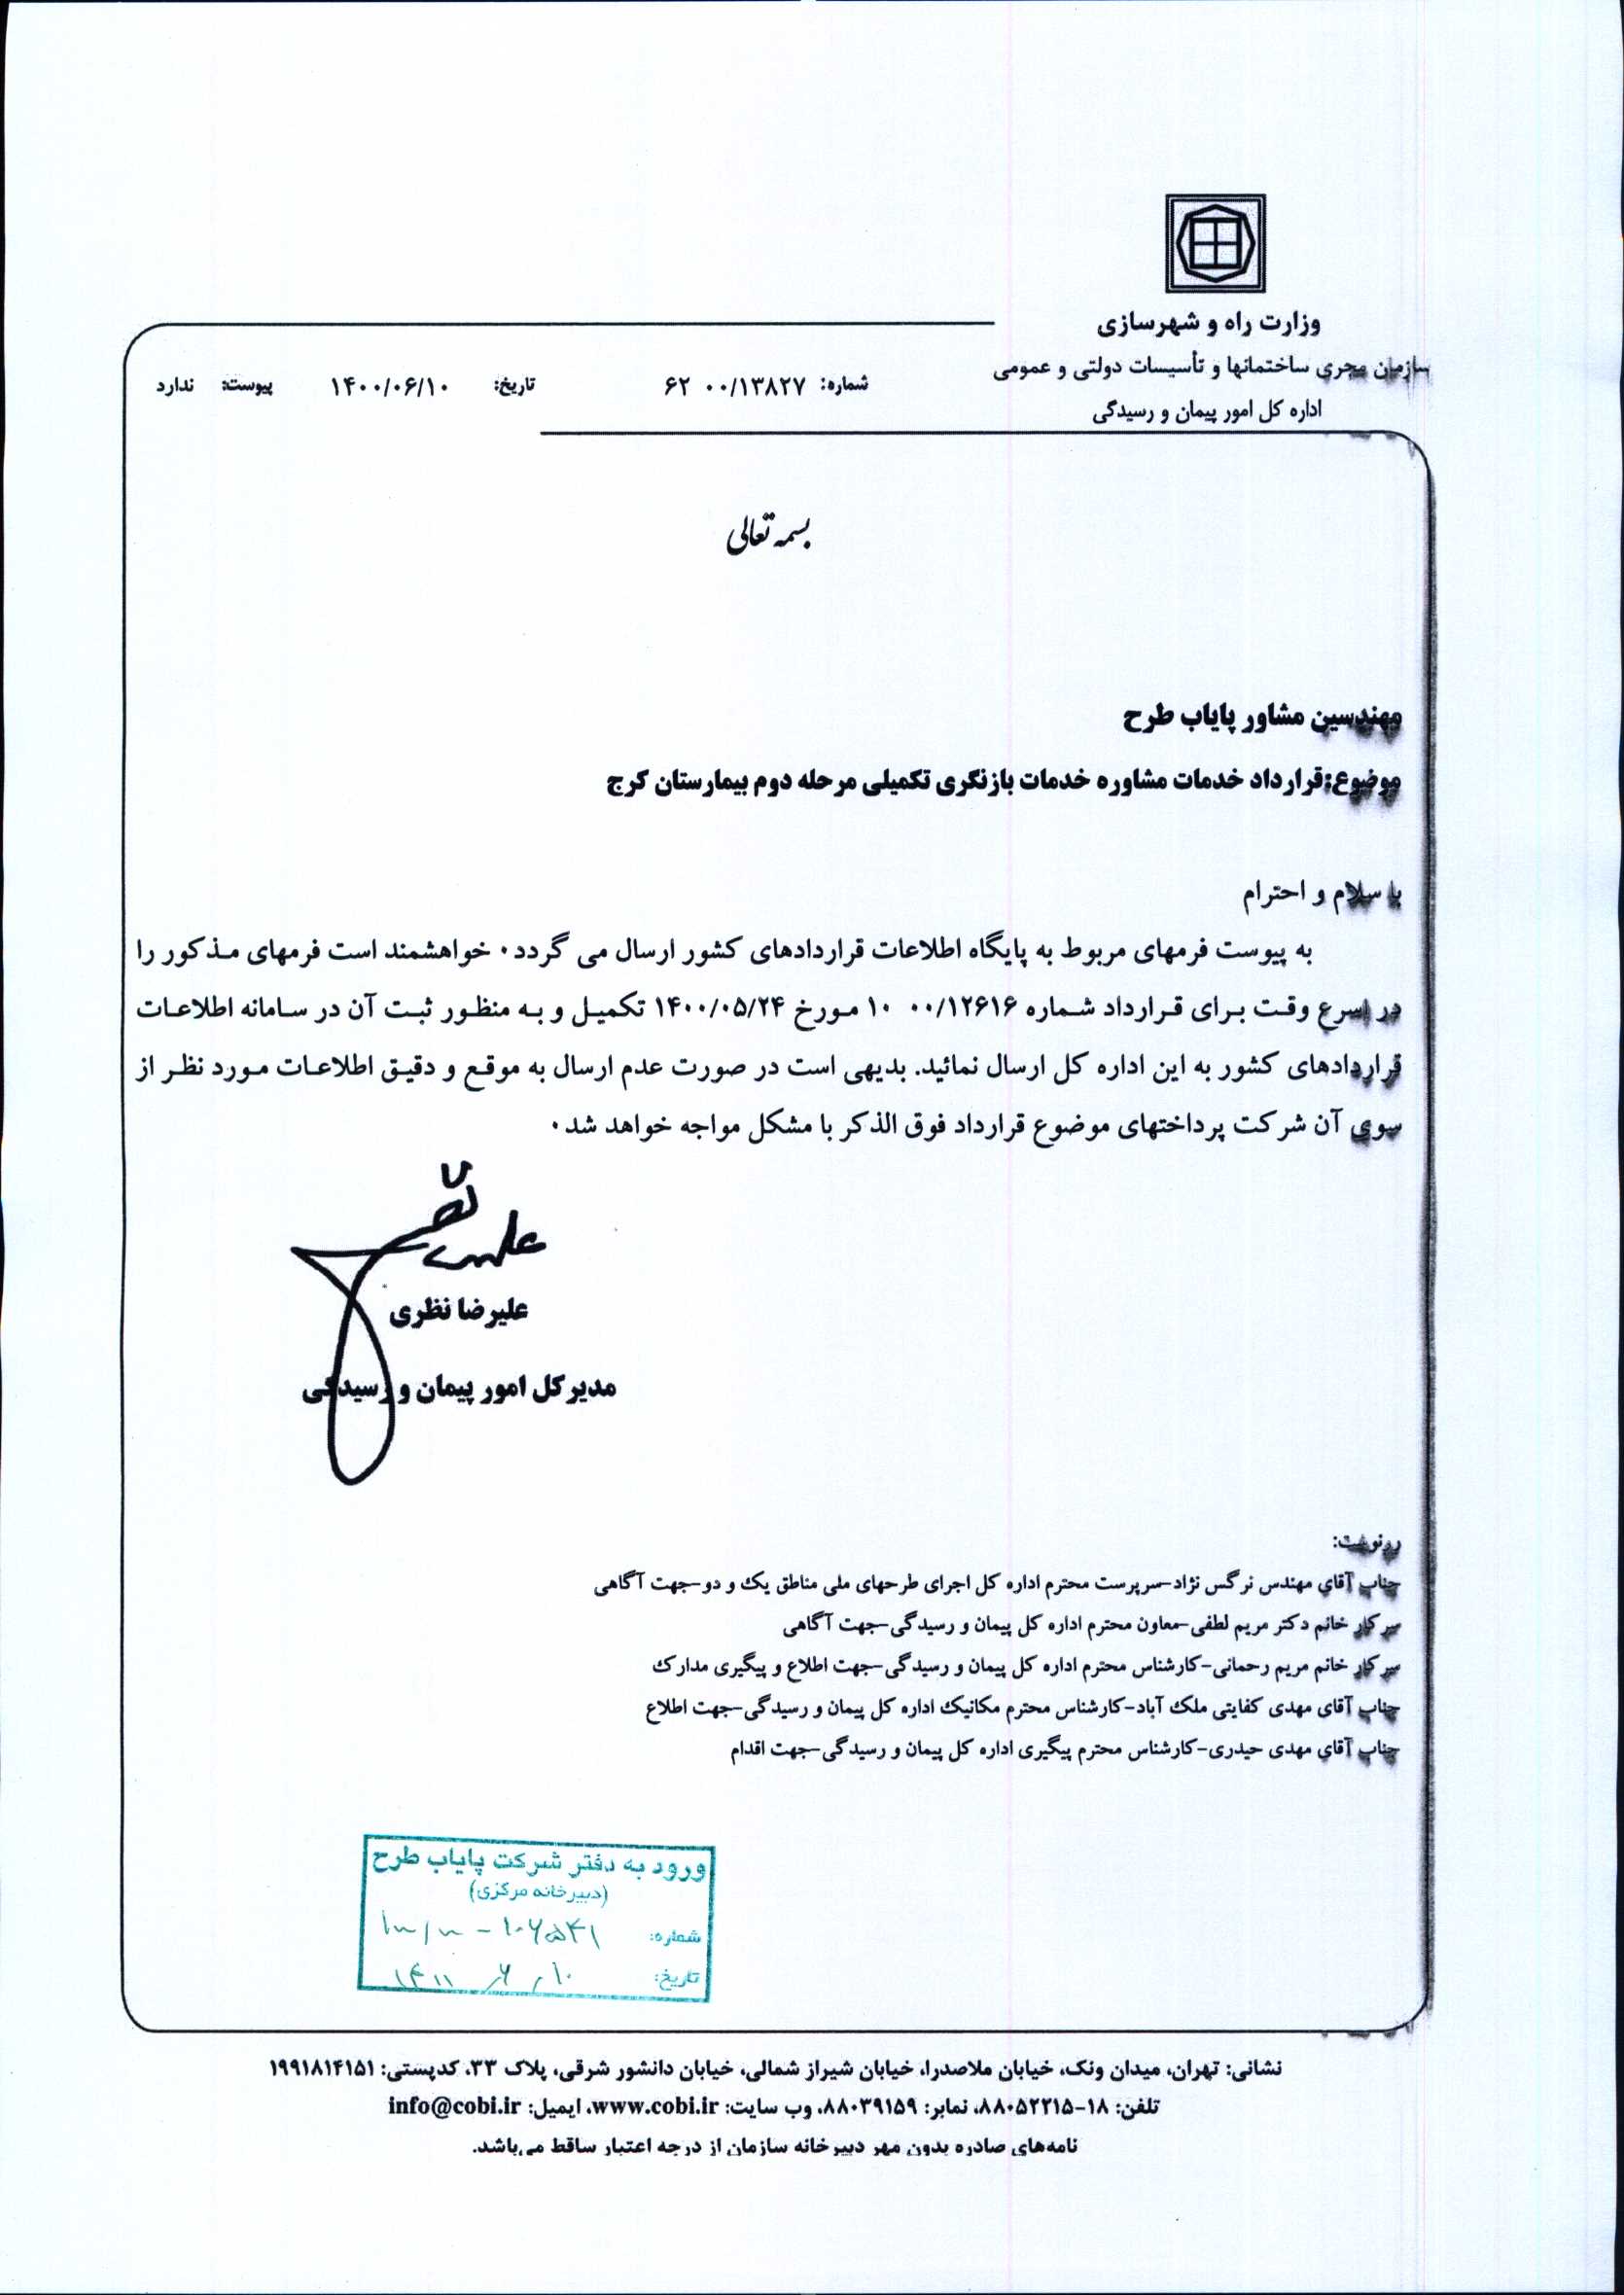 وزارت راه و شهرسازی
سازمان مجری ساختمانها و تأسیسات دولتی و عمومی
اداره کل امور پیمان و رسیدگی
شماره: ۶۲ ۰۰/۱۳۸۲۷ تاریخ: ۱۴۰۰/۰۶/۱۰ پیوست: ندارد
بسمه تعالی
مهندسین مشاور پایاب طرح
موضوع:قرارداد خدمات مشاوره خدمات بازنگری تکمیلی مرحله دوم بیمارستان کرج
با سلام و احترام
به پیوست فرمهای مربوط به پایگاه اطلاعات قراردادهای کشور ارسال می گردد۰ خواهشمند است فرمهای مذکور را
در اسرع وقت برای قرارداد شماره ۰۰/۱۲۶۱۶ ۱۰ مورخ ۱۴۰۰/۰۵/۲۴ تکمیل و به منظور ثبت آن در سامانه اطلاعات
قراردادهای کشور به این اداره کل ارسال نمائید. بدیهی است در صورت عدم ارسال به موقع و دقیق اطلاعات مورد نظر از
سوی آن شرکت پرداختهای موضوع قرارداد فوق الذکر با مشکل مواجه خواهد شد۰
علیرضا نظری
مدیرکل امور پیمان و رسیدگی
رونوشت:
جناب آقای مهندس نرگس نژاد-سرپرست محترم اداره کل اجرای طرحهای ملی مناطق یک و دو-جهت آگاهی
سرکار خانم دکتر مریم لطفی-معاون محترم اداره کل پیمان و رسیدگی-جهت آگاهی
سرکار خانم مریم رحمانی-کارشناس محترم اداره کل پیمان و رسیدگی-جهت اطلاع و پیگیری مدارک
جناب آقای مهدی کفایتی ملک آباد-کارشناس محترم مکانیک اداره کل پیمان و رسیدگی-جهت اطلاع
جناب آقای مهدی حیدری-کارشناس محترم پیگیری اداره کل پیمان و رسیدگی-جهت اقدام
ورود به دفتر شرکت پایاب طرح
(دبیرخانه مرکزی)
شماره:
تاریخ:
نشانی: تهران، میدان ونک، خیابان ملاصدرا، خیابان شیراز شمالی، خیابان دانشور شرقی، پلاک ۳۳، کدپستی: ۱۹۹۱۸۱۴۱۵۱
تلفن: ۱۸-۸۸۰۵۲۲۱۵، نمابر: ۸۸۰۳۹۱۵۹، وب سایت: www.cobi.ir، ایمیل: info@cobi.ir
نامه‌های صادره بدون مهر دبیرخانه سازمان از درجه اعتبار ساقط می‌باشد.